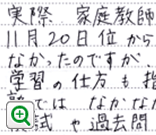 実際 家庭教師
11月20日位から
なかったのですが、
学習の仕方も指
では なかなか
試や過去問